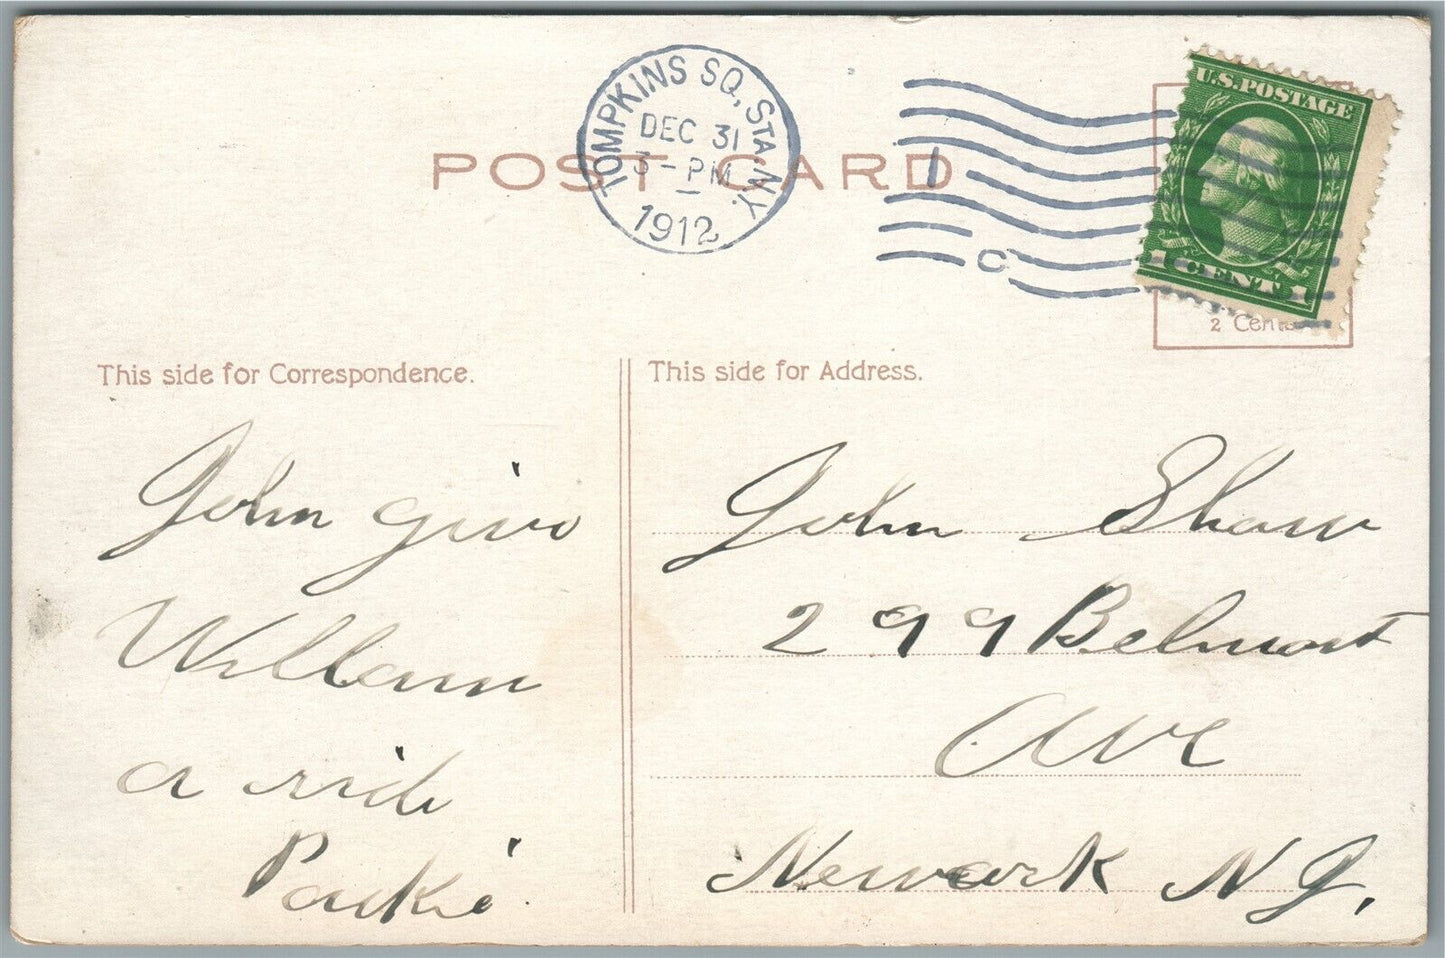 TOMPKINS SQ. STA. N.Y.
DEC 31
3 - PM
1912
1
C
POST CARD
U.S. POSTAGE
1 CENT 1
2 Cents
This side for Correspondence.
This side for Address.
John give
William
a ride
John Shaw
299 Belmont
Ave
Newark N J,